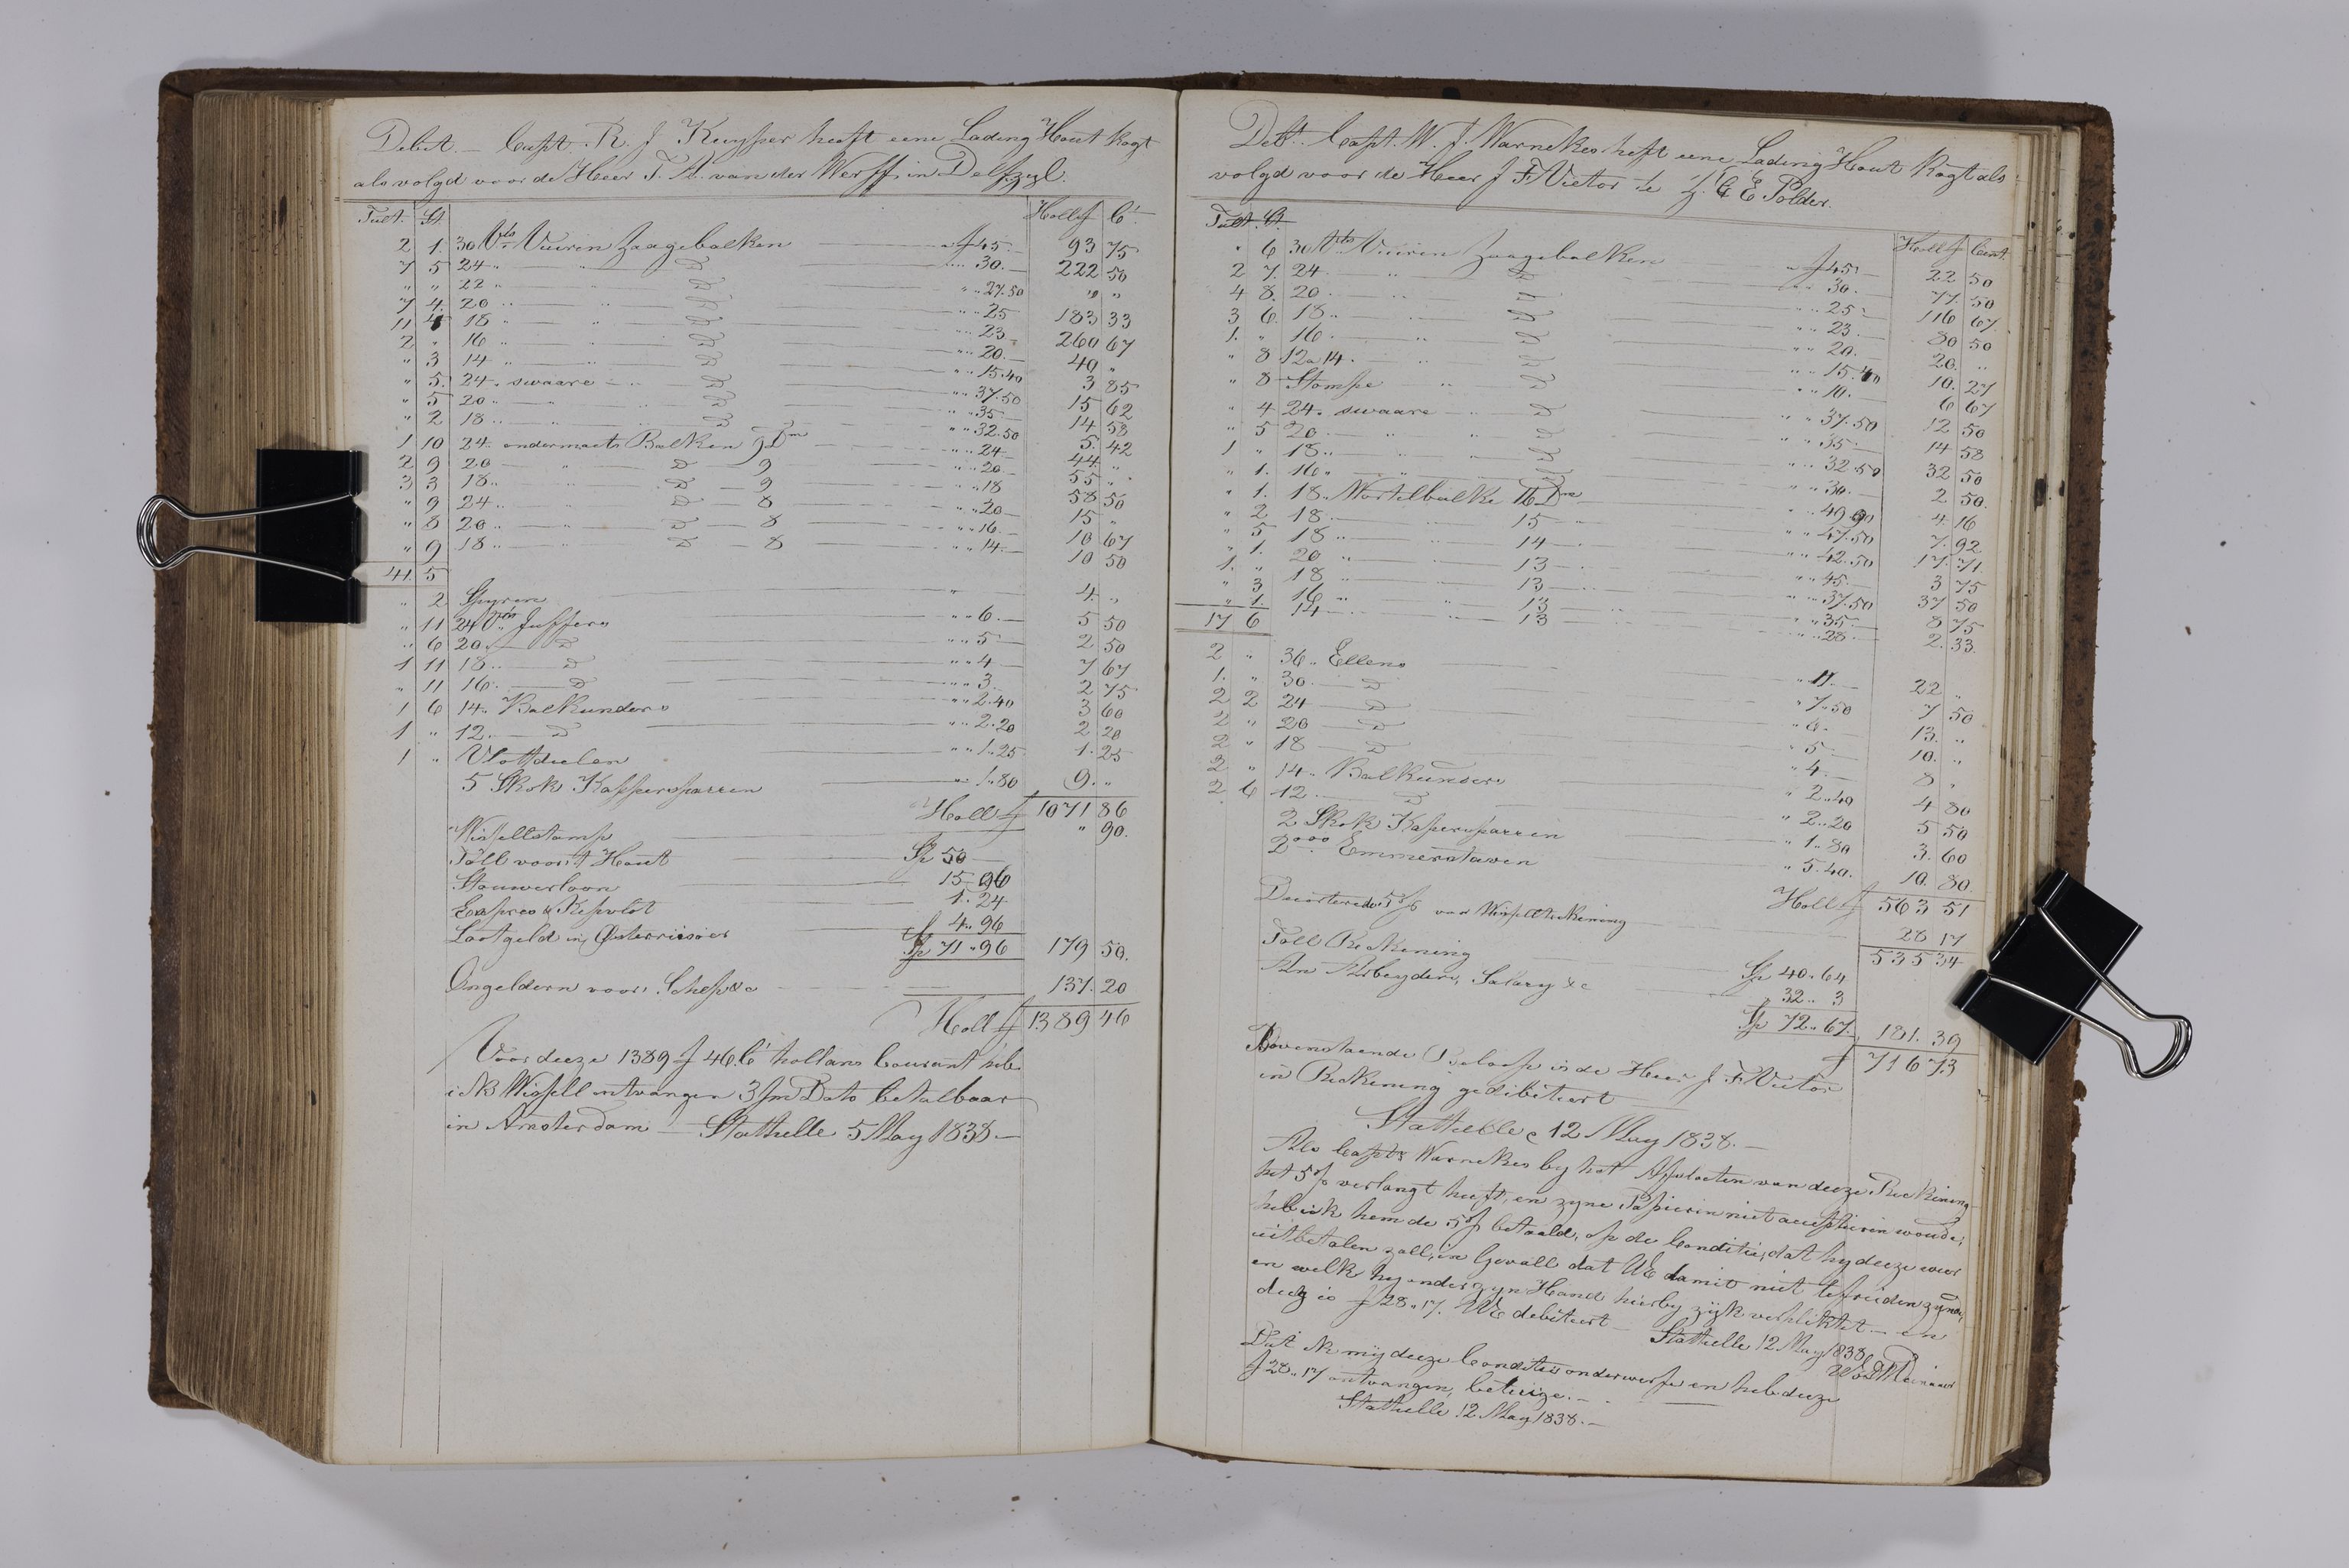 Debet. — Capt. R. J Kuyper heeft eene Lading Hout kogt
als volgd voor de Heer T. A. van der Werff in Delfzyl.
Tult. St. Holl f Ct
2 1 30 Vts Vuiren Zaagebalken f 45 — 93 75
7 5 24 " — " D " 30. — 222 50
" " 22 " — " D " 27.50 " "
7 4 20 " — " D " 25 183 33
11 4 18 " — " D " 23 — 260 67
2 " 16 " — " D " 20. — 40 "
" 3 14 " — " D " 15.40 3 85
" 5 24 " swaare — " D " 37.50 15 62
" 5 20 " " " D " 35 — 14 58
" 2 18 " " " D " 32.50 5 42
1 10 24 " ondermaets Balken 9 Dm " 24 — 44 "
2 9 20 — " D 9 " 20 — 55 "
3 3 18 " — " D 9 " 18 58 50
" 9 24 " — " D 8 " 20 — 15 "
" 8 20 " — " D 8 " 16 — 10 67
" 9 18 " — " D 8 " 14 — 10 50
41. 5
" 2 Spyren " 4 "
" 11 24 Vts Juffers " 6 — 5 50
" 6 20 — D " 5 — 2 50
1 11 18 " — D " 4 — 7 67
" 11 16 " — D " 3 — 2 75
1 6 14 " Balkunders " 2.40 3 60
1 " 12 — D " 2.20 2 20
1 " Vlottdielen " 1.25 1. 25
5 Skok Kappersparren " 1.80 9. "
Holl f 1071 86
Wisselstamp " 90.
Toll voor't Hout Sp 50 —
Stouwerloon 15 96
Expres & 1. 24
Lootgeld in Østerriisöer 4. 96
Sp 71 . 96 179 50.
Ongeldern voor Schep &c 137. 20
Holl f 1389 46
Voor deeze 1389 f 46 Ct hollans Courant heb
ik Wissell ontvangen 3 m Dato betalbaar
in Amsterdam — Stathelle 5 May 1838 —
Debt. Capt. W. J. Warnekes heft eene Lading Hout kogt als
volgd voor de Heer J F Victor te J. G E Polder.
Tult. St. Holl f Cent.
" 6 30 Vts Vuiren Zaagebalken f 45 — 22 50
2 7. 24 " " D " 30. — 77. 50
4 8. 20 — " D " 25 — 116 67
3 6. 18 " " D " 23 — 80 50
1. " 16 " " D " 20. — 20. "
" 8 12 a 14. " D " 15.40 10. 27
" 8 Stompe " D " 10. — 6 67
" 4 24 " swaare — " D " 37.50 12 50
" 5 20 " " D " 35 — 14 58
1 " 18 " " D " 32.50 32 50
" 1. 16 " " D " 30. — 2 50.
" 1. 18 " Wortelbalke 16 Dm " 49.90 4. 16
" 2 18 " — " 15 — " " 47.50 7. 92
" 5 18 " " 14 — " 42.50 17. 71.
" 1. 20 " " 13 — " 45. — 3 75
1. " 18 " " 13 — " 37.50 37 50
" 3 16 " " 13 — " 35 — 8 75
" 1. 14 — " 13 " 28 — 2. 33.
17 6
2 " 36 " Ellens " 11. — 22 "
1. " 30 — D " 7.50 7 50
2 2 24 — D " 6. — 13. "
2 " 20 — D " 5 — 10. "
2 " 18 — D " 4. — 8 "
2 " 14 " Balkunders " 2.40 4 80
2. 6 12 — D " 2.20 5 50
2 Skok Kapersparren " 1.80 3. 60
2000 Emmerstaven " 5.40. 10. 80.
Holl f 563 51
5 % voor 28 17
535 34
Toll Rekening Sp 40.64
An Arbeyders, Salary &c 32.. 3
Sp 72.. 67. 181. 39
f 716 73
Bovenstaende Beloop is de Heer J F Victor
in Rekening gedibiteert
Stathelle 12 May 1838. —
Als Capts Warnekes by het Afsluten van deeze Rekening
het 5 % verlangt heeft, en zyne Papieren niet accepteren woude;
heb ik hem de 5 % betaald, op de Conditie, dat hy deeze weer
uitbetalen zall, in Gevall dat UE damit niet tefreeden zynde,
en welk hy onder zyn Hand hierby zijk verpliktet — en
deez is f 28.. 17. UE debiteert — Stathelle 12 May 1838
Dat ik mij deeze Conditie onderwerfe en heb deeze
f 28.. 17 ontvangen, beteuge. —
Stathelle 12 May 1838. —